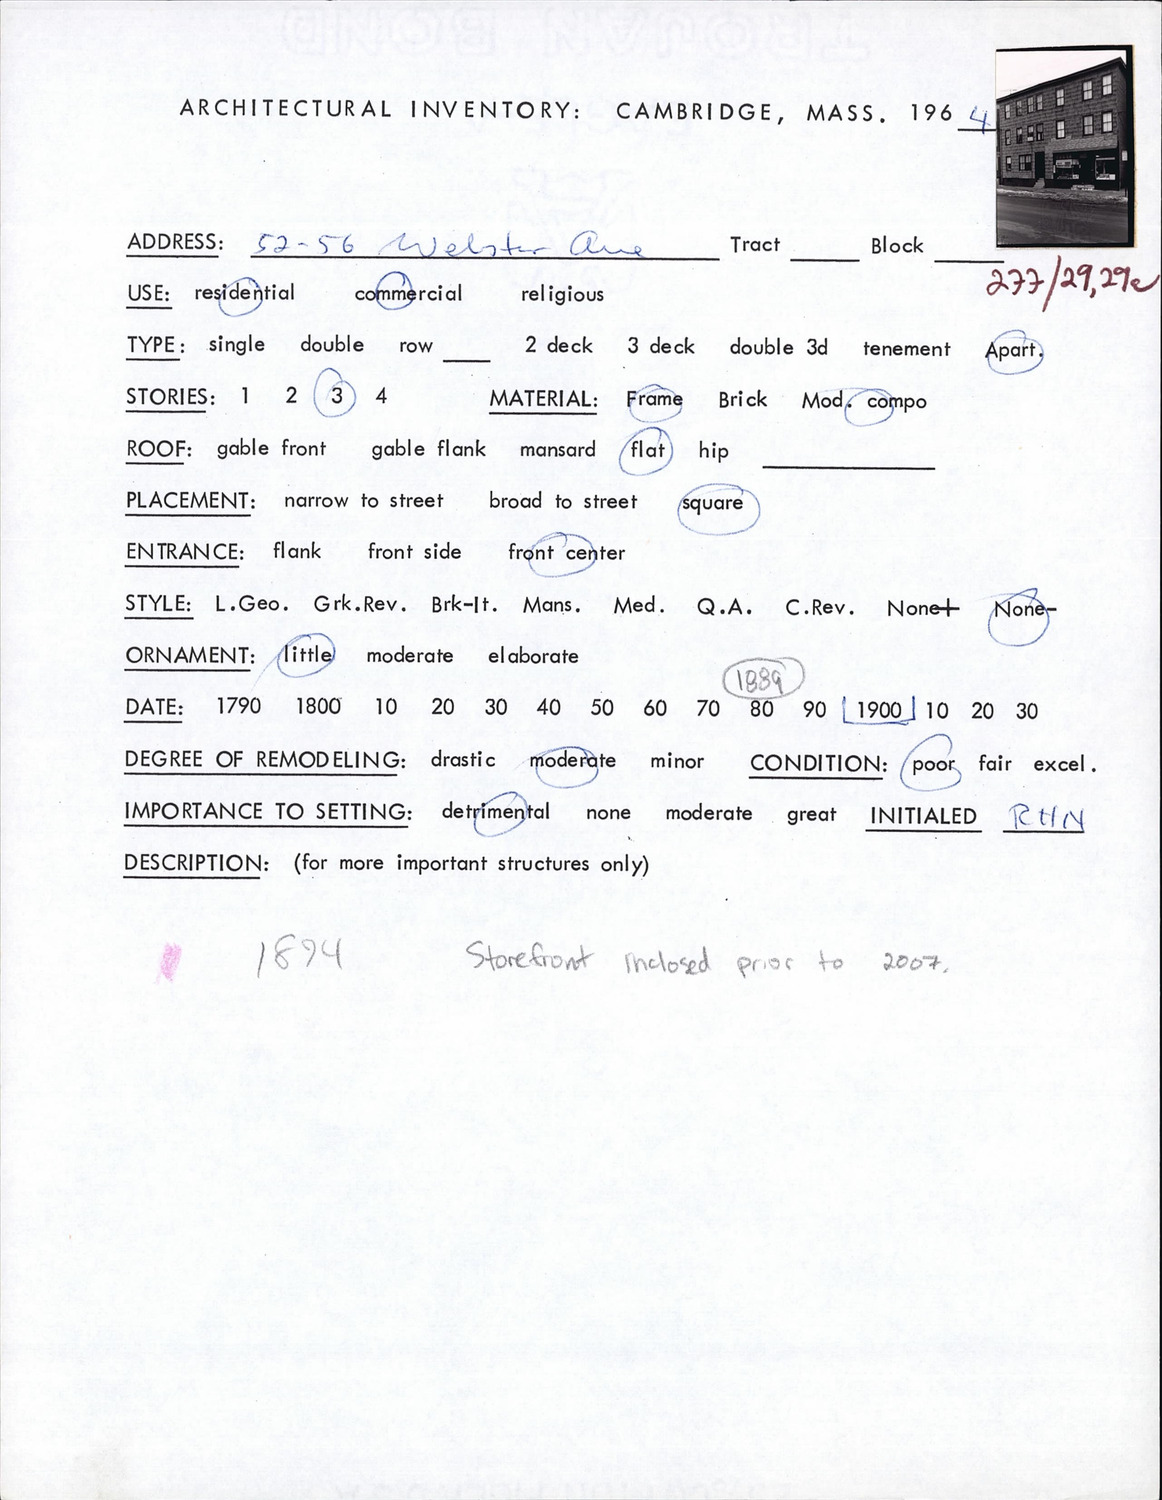 ARCHITECTURAL INVENTORY: CAMBRIDGE, MASS. 1964
ADDRESS: 52-56 Webster Ave Tract ____ Block ____
277/29,29a
USE: residential commercial religious
TYPE: single double row ____ 2 deck 3 deck double 3d tenement Apart.
STORIES: 1 2 3 4 MATERIAL: Frame Brick Mod. compo
ROOF: gable front gable flank mansard flat hip ____
PLACEMENT: narrow to street broad to street square
ENTRANCE: flank front side front center
STYLE: L.Geo. Grk.Rev. Brk-It. Mans. Med. Q.A. C.Rev. None+ None-
ORNAMENT: little moderate elaborate
1889
DATE: 1790 1800 10 20 30 40 50 60 70 80 90 1900 10 20 30
DEGREE OF REMODELING: drastic moderate minor CONDITION: poor fair excel.
IMPORTANCE TO SETTING: detrimental none moderate great INITIALED RHN
DESCRIPTION: (for more important structures only)
1894 Storefront inclosed prior to 2007.